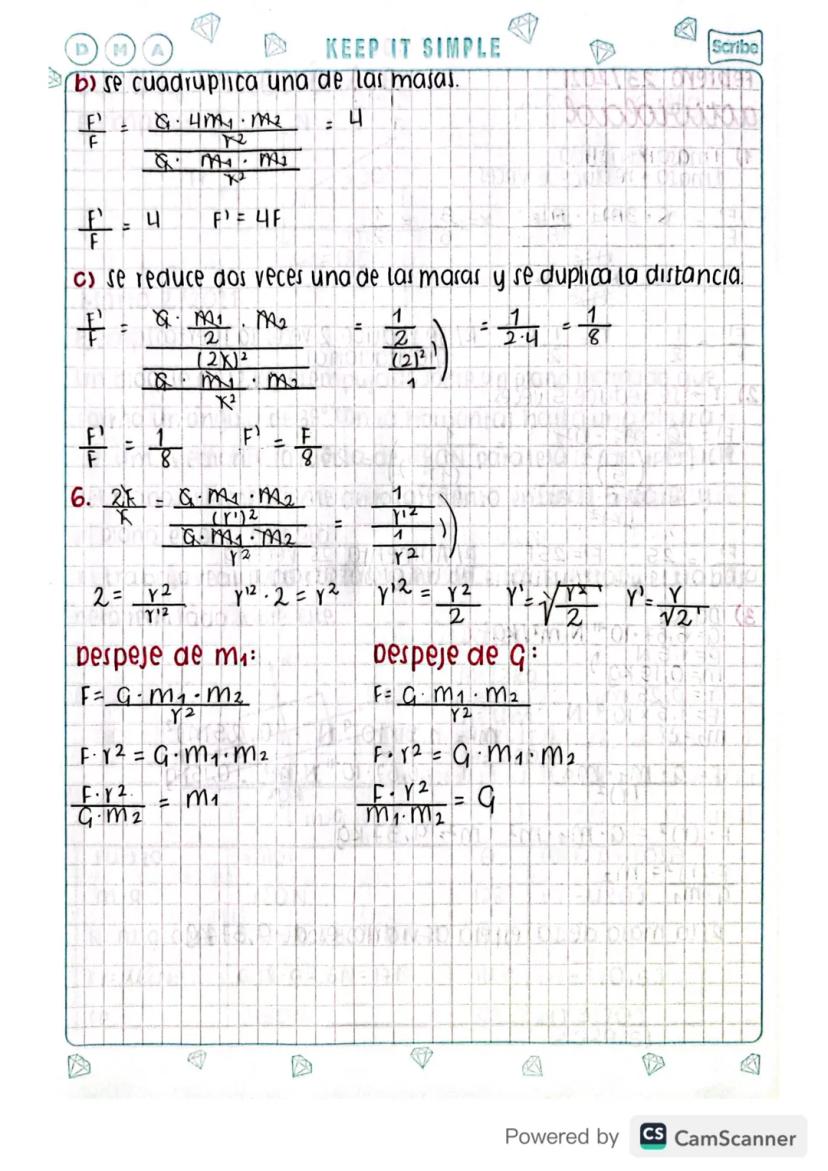 D M A KEEP IT SIMPLE Scribe
b) se cuadruplica una de las masas.
F'/F = (G · 4m1 · m2 / r²) / (G · m1 · m2 / r²) = 4
F'/F = 4 F' = 4F
c) se reduce dos veces una de las masas y se duplica la distancia.
F'/F = (G · m1/2 · m2 / (2r)²) / (G · m1 · m2 / r²) = (1/2) / ((2)²/1) = 1/(2·4) = 1/8
F'/F = 1/8 F' = F/8
6. 2F/F = (G · m1 · m2 / (r')²) / (G · m1 · m2 / r²) = (1/r'²) / (1/r²)
2 = r²/r'² r'² · 2 = r² r'² = r²/2 r' = √(r²/2) r' = r/√2
Despeje de m1: Despeje de G:
F = G · m1 · m2 / r² F = G · m1 · m2 / r²
F · r² = G · m1 · m2 F · r² = G · m1 · m2
F · r² / G · m2 = m1 F · r² / m1 · m2 = G
Powered by CS CamScanner